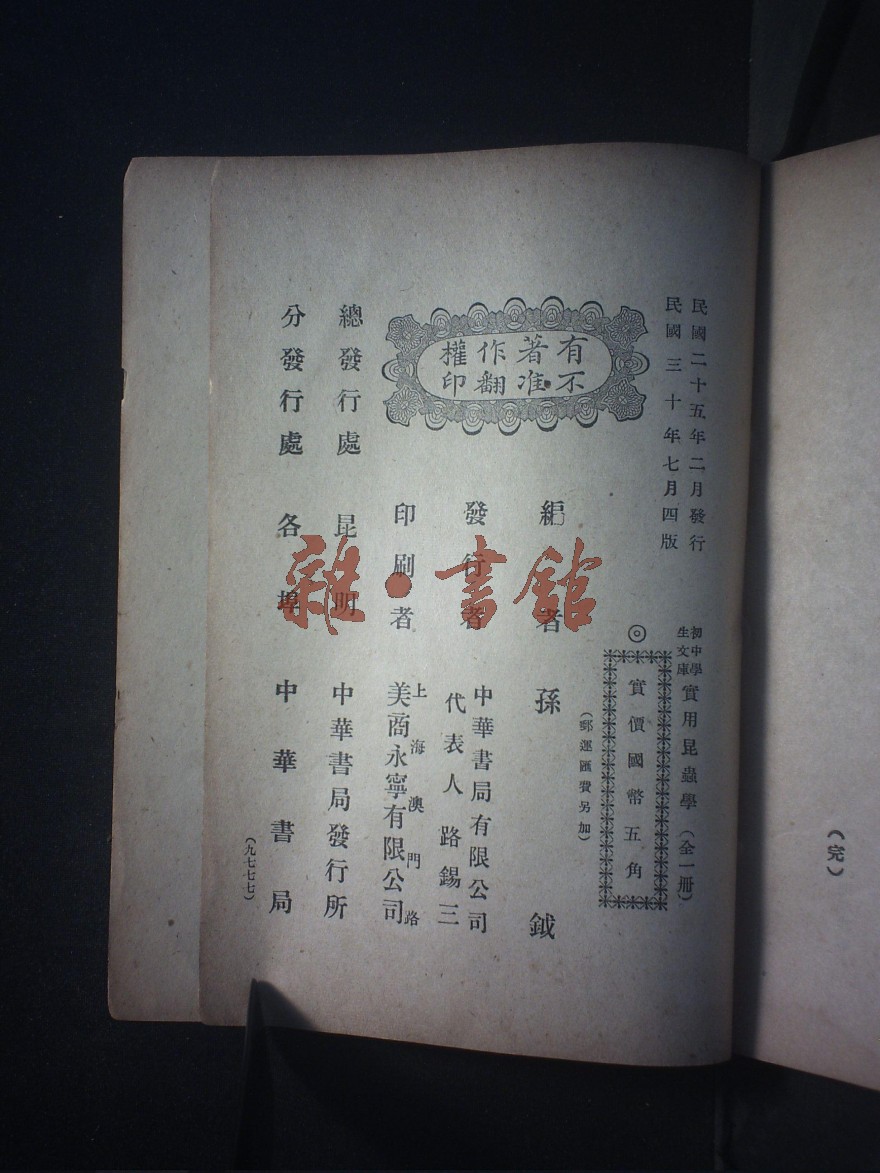 民國二十五年二月發行
民國三十年七月四版
初中學
生文庫
實用昆蟲學（全一册）
◎
實價國幣五角
（郵運匯費另加）
有著作權
不准翻印
編者 孫鉞
發行者 中華書局有限公司
代表人 路錫三
印刷者 上海澳門路
美商永寧有限公司
總發行處 昆明 中華書局發行所
分發行處 各埠 中華書局
（九七七七）
（完）
雜·書館